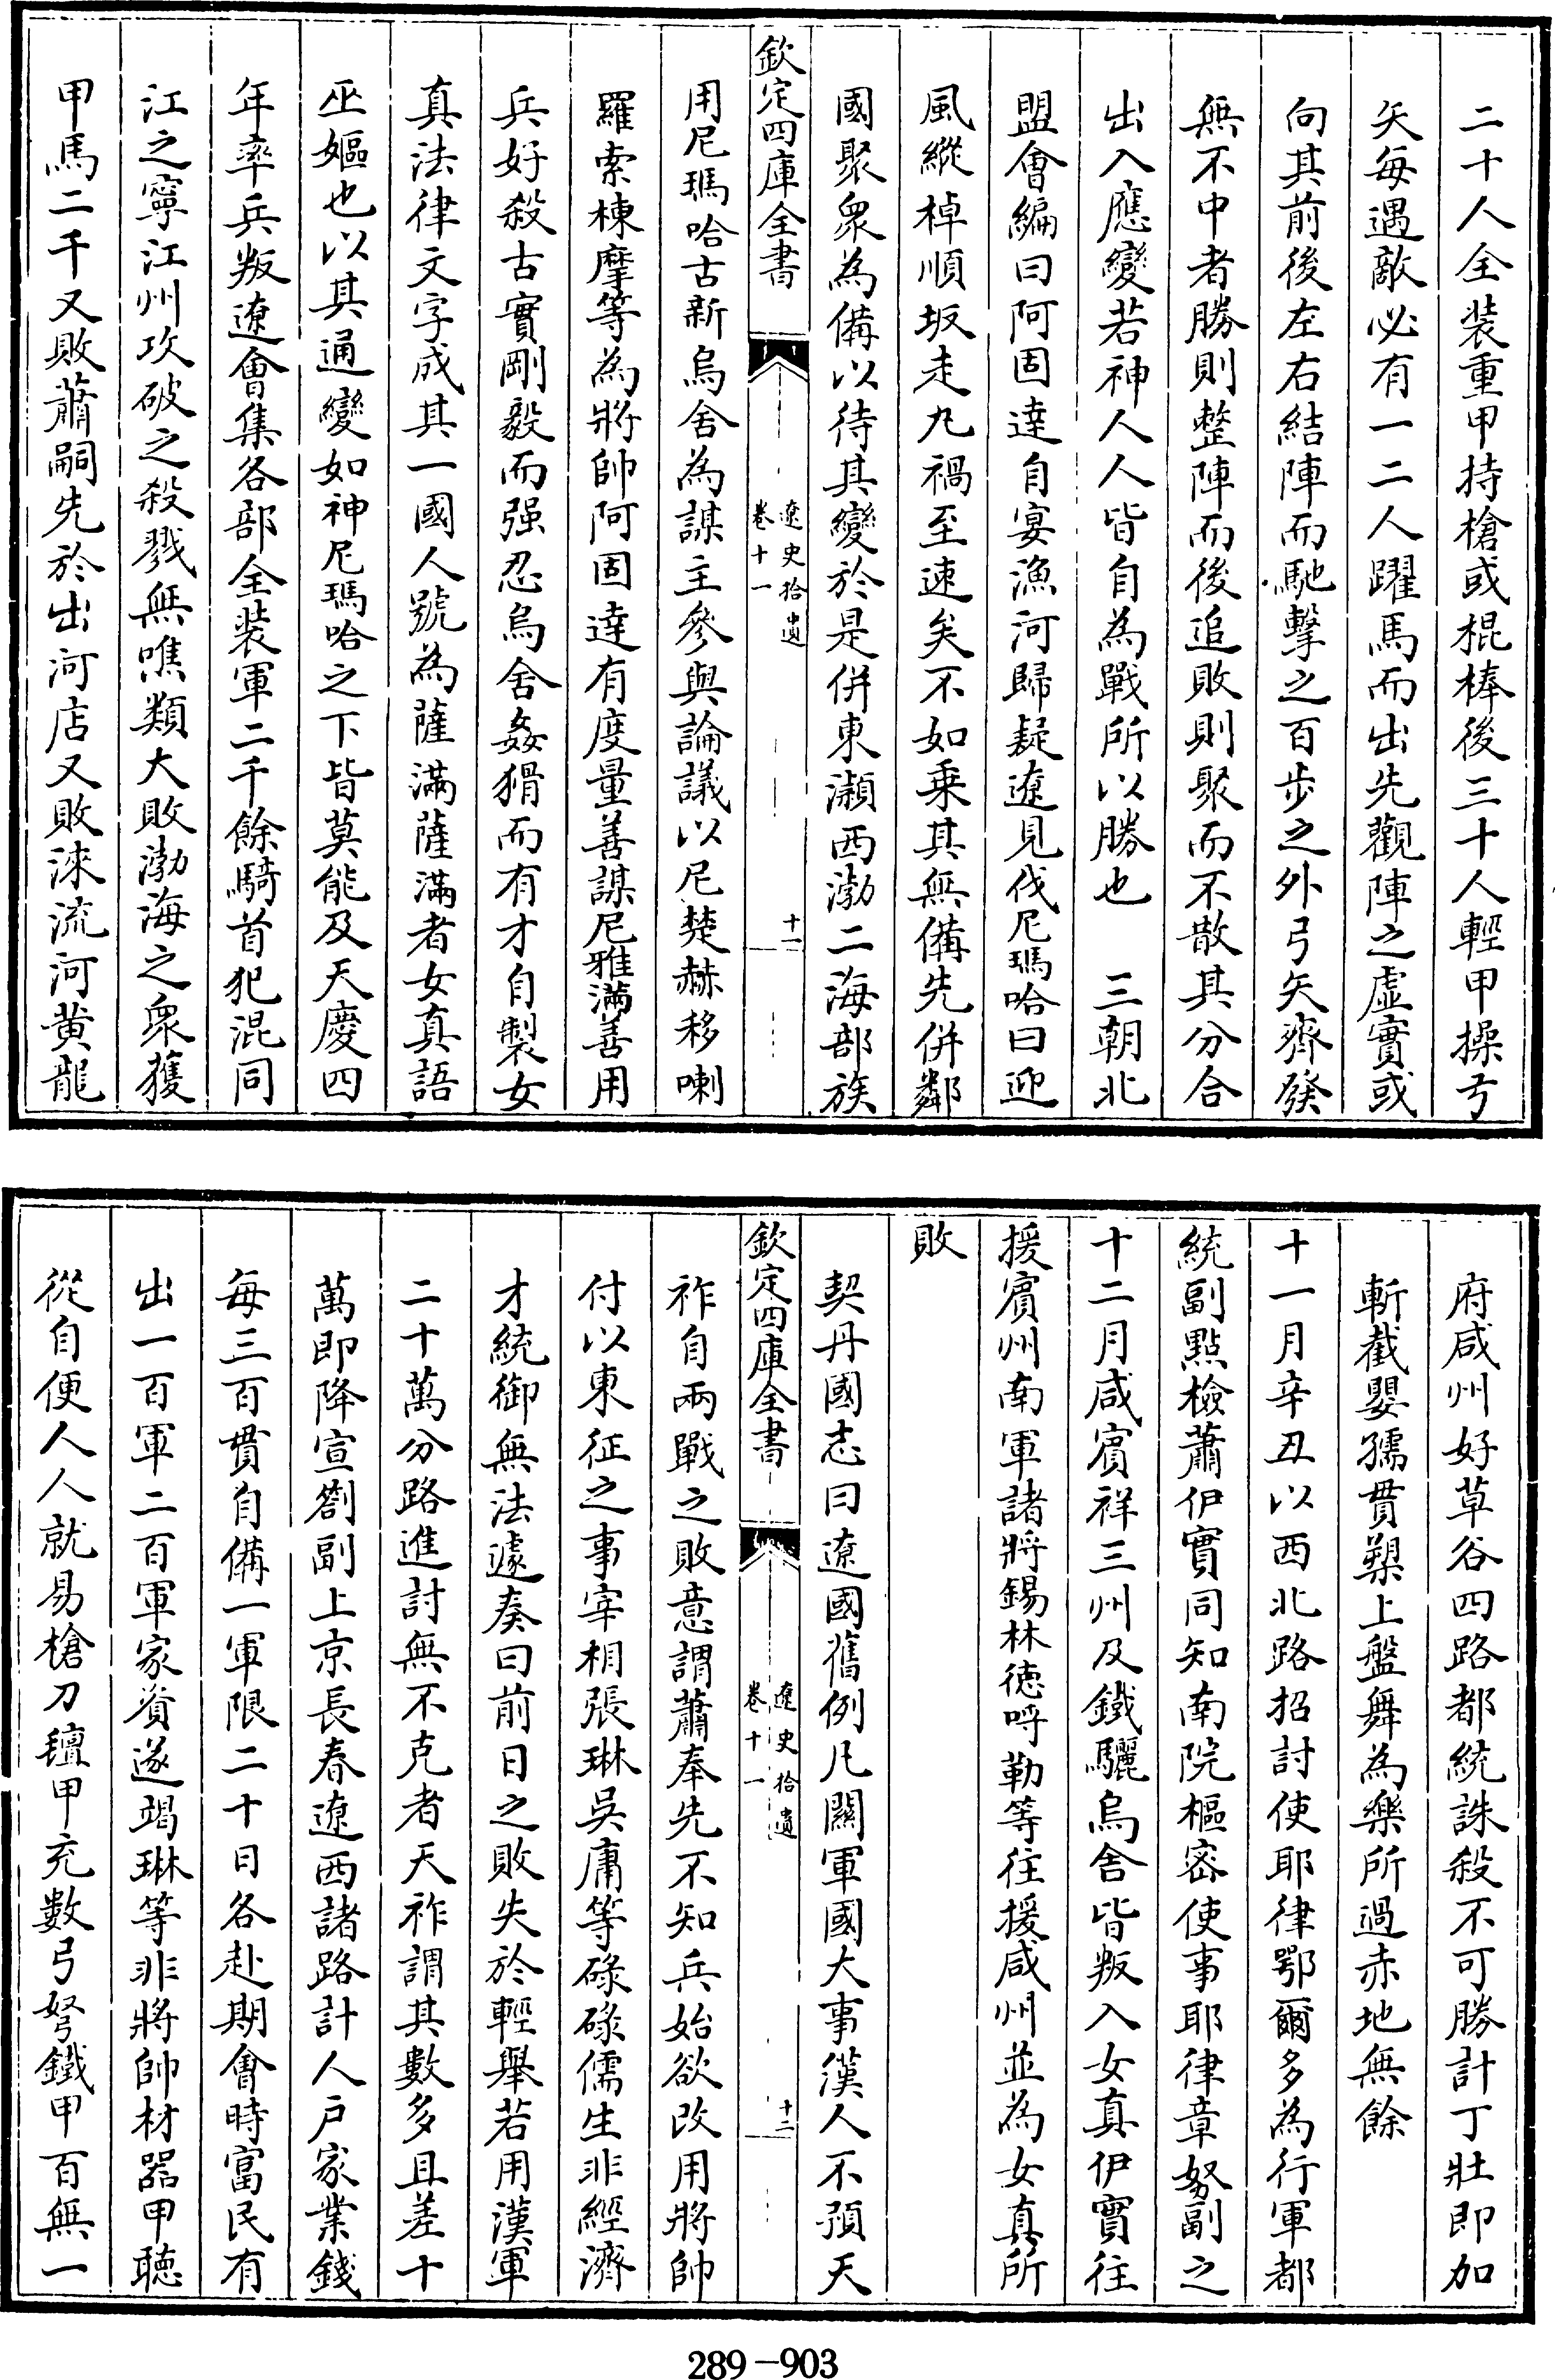 二十人全装重甲持槍或棍棒後三十人輕甲操弓
矢每遇敵必有一二人躍馬而出先觀陣之虛實或
向其前後左右結陣而馳擊之百步之外弓矢齊發
無不中者勝則整陣而後追敗則聚而不散其分合
出入應變若神人人皆自為戰所以勝也　三朝北
盟會編曰阿固達自宴漁河歸疑遼見伐尼瑪哈曰迎
風縱棹順坂走丸禍至速矣不如乗其無備先併鄰
國聚衆為備以待其變於是併東瀕西渤二海部族
欽定四庫全書
遼史拾遺
卷十一
十一
用尼瑪哈古新烏舍為謀主參與論議以尼楚赫移喇
羅索棟摩等為將帥阿固達有度量善謀尼雅滿善用
兵好殺古實剛毅而强忍烏舍姦猾而有才自製女
真法律文字成其一國人號為薩滿薩滿者女真語
巫嫗也以其通變如神尼瑪哈之下皆莫能及天慶四
年率兵叛遼會集各部全装軍二千餘騎首犯混同
江之寧江州攻破之殺戮無噍類大敗渤海之衆獲
甲馬二千又敗蕭嗣先於出河店又敗淶流河黄龍
府咸州好草谷四路都統誅殺不可勝計丁壯即加
斬截嬰孺貫槊上盤舞為樂所過赤地無餘
十一月辛丑以西北路招討使耶律鄂爾多為行軍都
統副點檢蕭伊實同知南院樞密使事耶律章努副之
十二月咸賓祥三州及鐵驪烏舍皆叛入女真伊實往
援賓州南軍諸將錫林德哷勒等往援咸州並為女真所
敗
契丹國志曰遼國舊例凡關軍國大事漢人不預天
欽定四庫全書
遼史拾遺
卷十一
十二
祚自兩戰之敗意謂蕭奉先不知兵始欲改用將帥
付以東征之事宰相張琳吳庸等碌碌儒生非經濟
才統御無法遽奏曰前日之敗失於輕舉若用漢軍
二十萬分路進討無不克者天祚謂其數多且差十
萬即降宣劄副上京長春遼西諸路計人戸家業錢
每三百貫自備一軍限二十日各赴期會時富民有
出一百軍二百軍家貲遂竭琳等非將帥材器甲聴
從自便人人就易槍刀氊甲充數弓弩鐵甲百無一
289-903